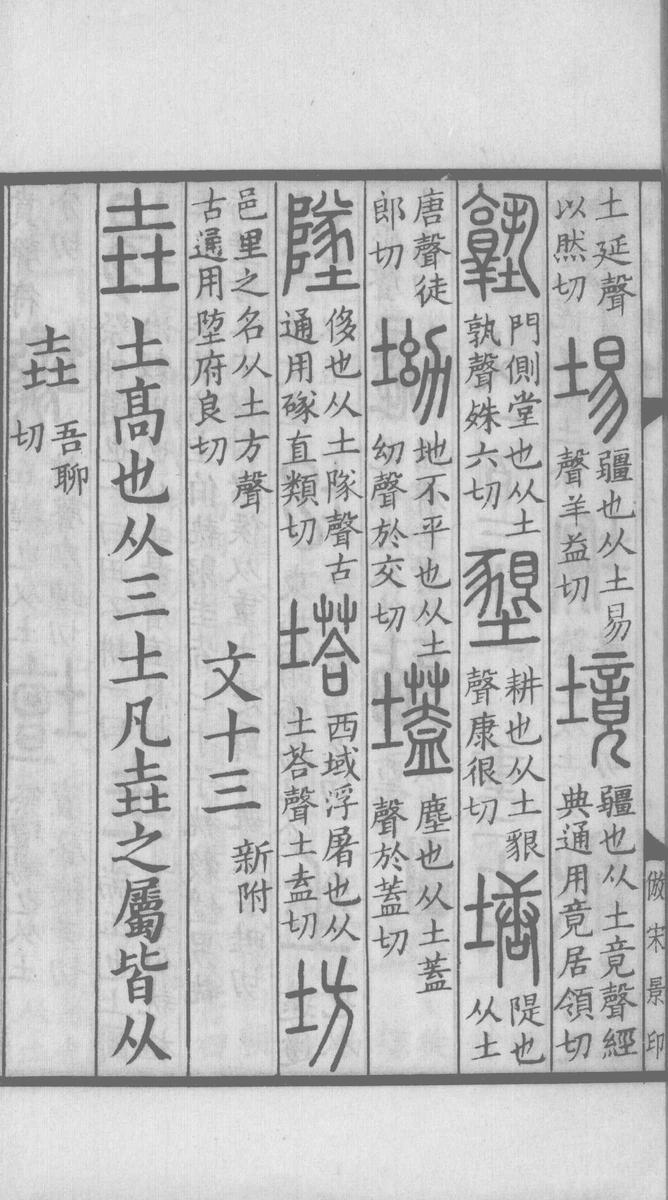 土延聲以然切埸疆也从土易聲羊益切境疆也从土竟聲經典通用竟居領切
塾門側堂也从土孰聲殊六切墾耕也从土豤聲康很切塘隄也从土
唐聲徒郎切坳地不平也从土幼聲於交切壒塵也从土蓋聲於蓋切
墜侈也从土隊聲古通用直類切塔西域浮屠也从土荅聲土盍切坊
邑里之名从土方聲古通用埅府良切文十三新附
垚土髙也从三土凡垚之屬皆从
垚吾聊切
倣宋景印